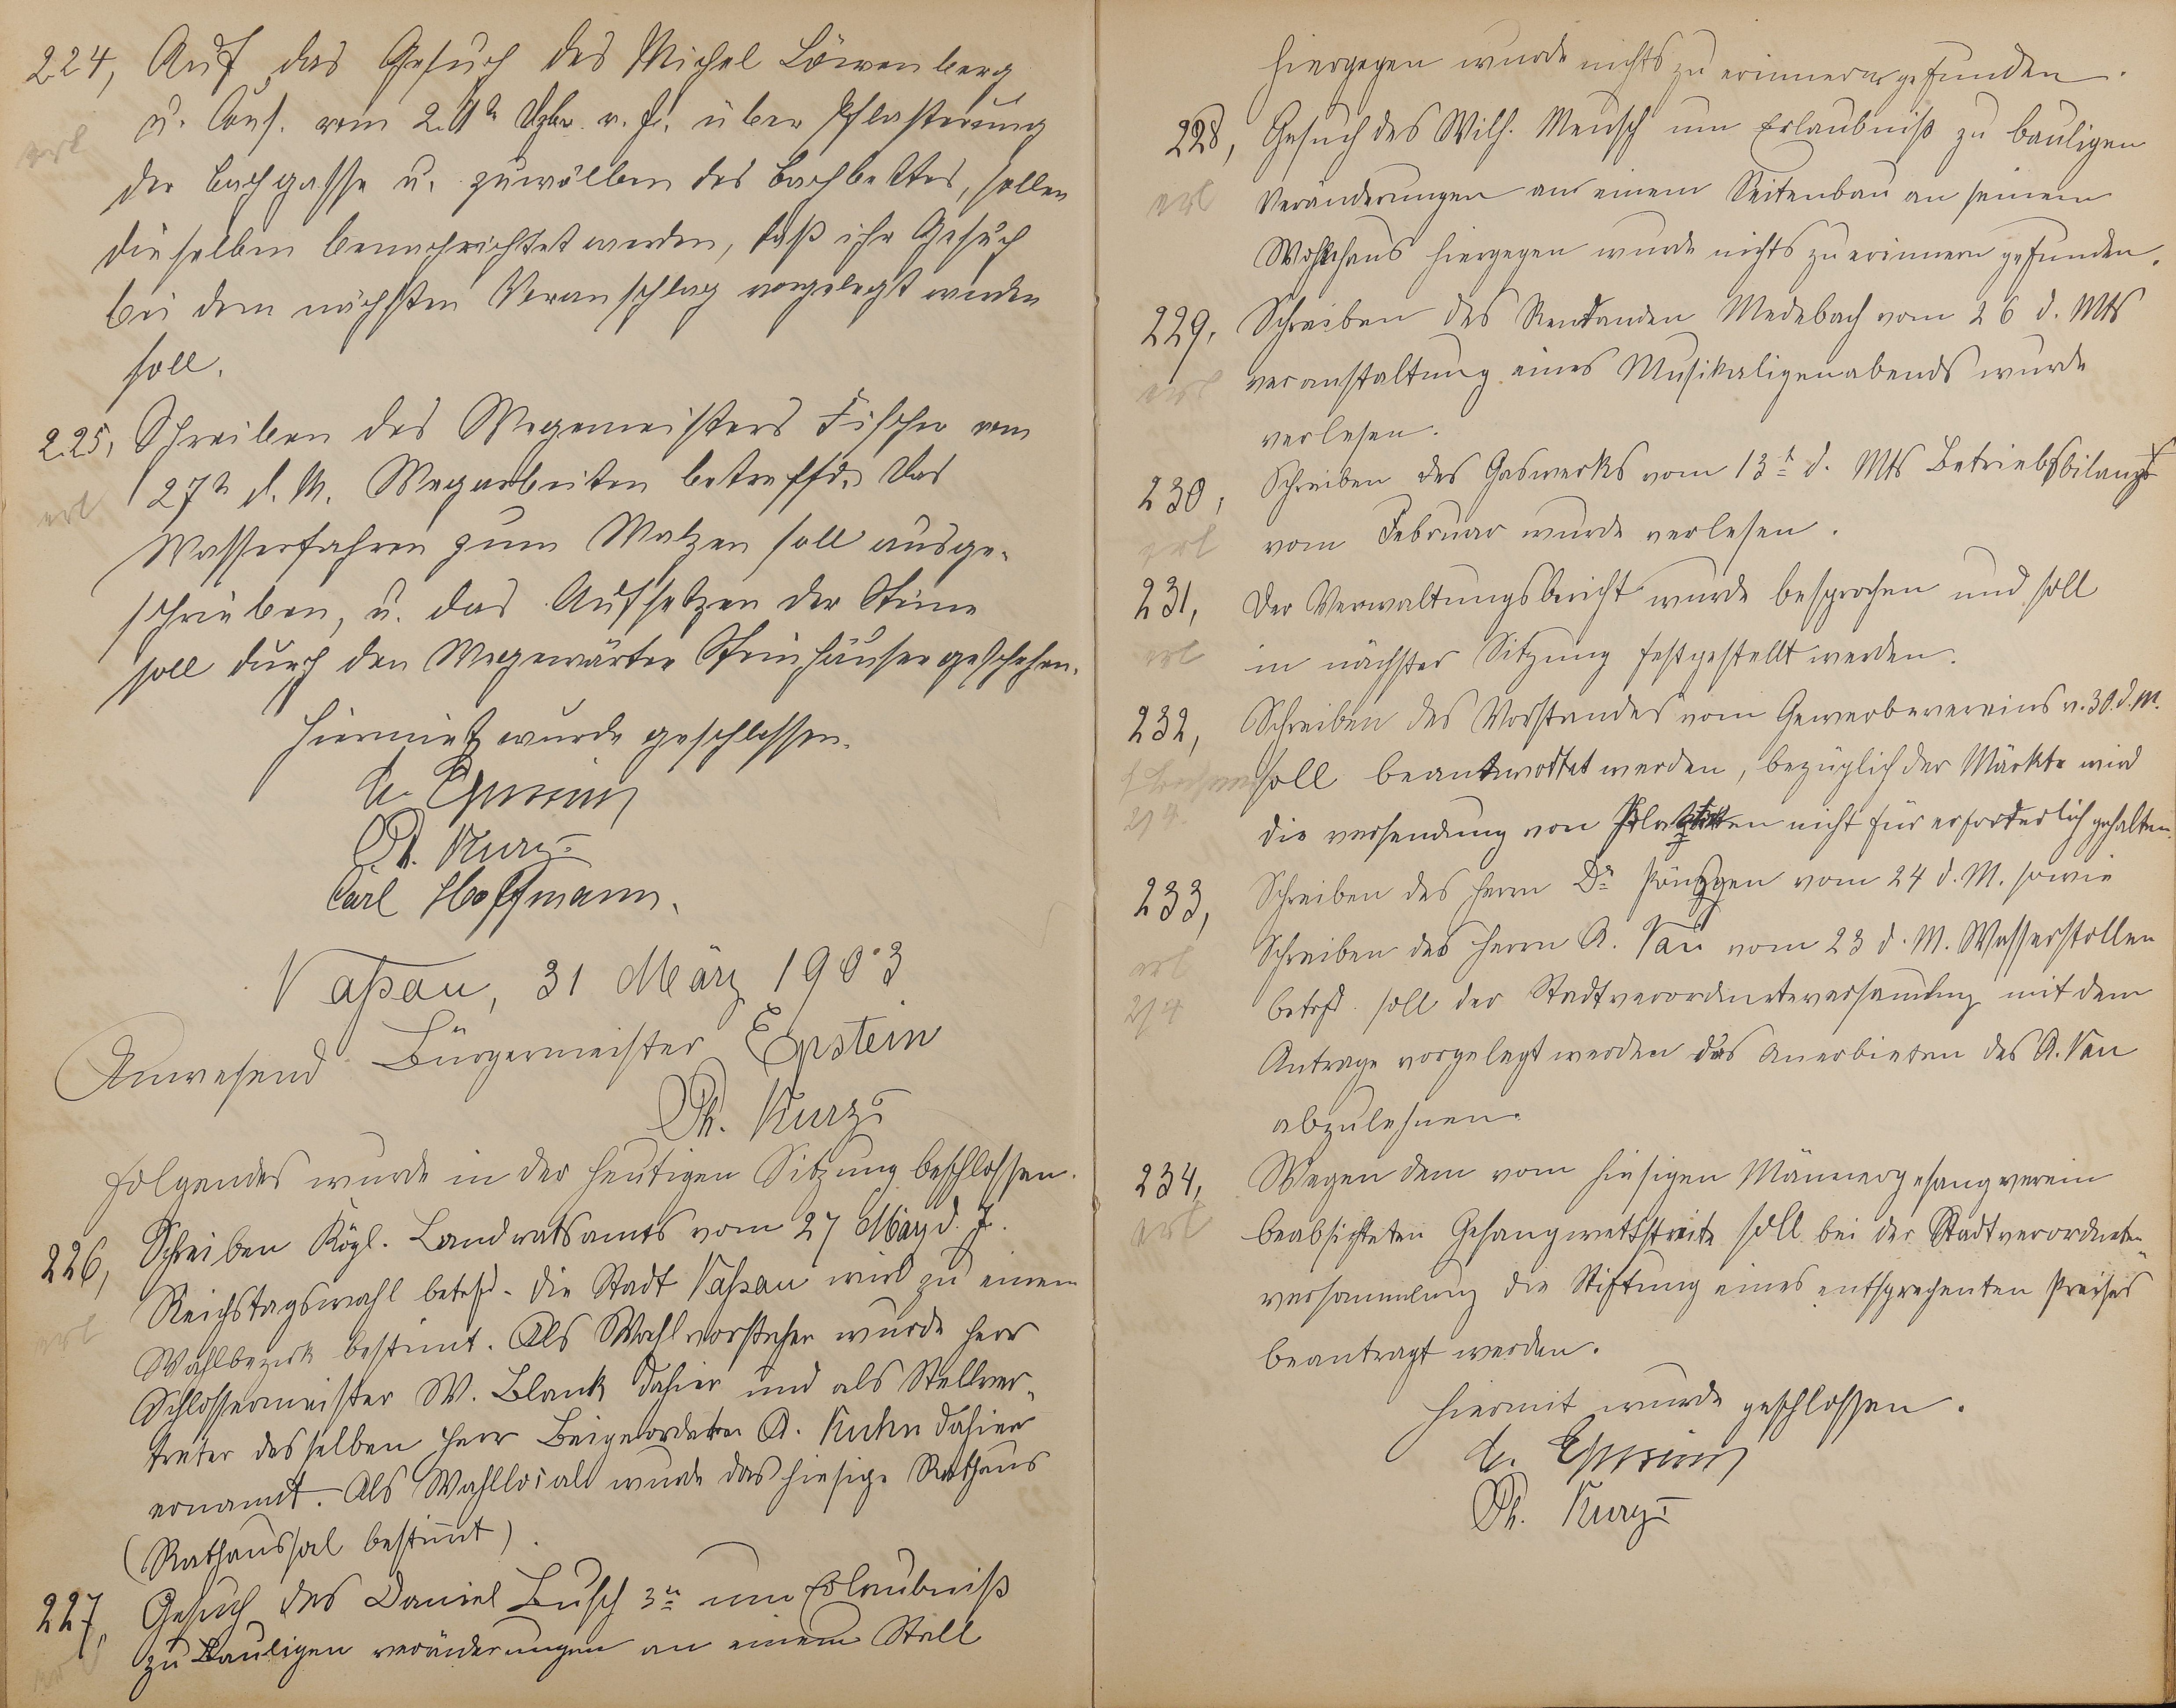 224, Auf das Gesuch des Michel Löwenberg
erl
u. Cons. vom 2. Dzbr. v. Js. über Pflasterung
der Bachgasse u. zuwölben des Bachbettes, sollen
dieselben benachrichtet werden, daß ihr Gesuch
bei dem nächsten Voranschlag vorgelegt werden
soll.
225, Schreiben des Wegemeisters Fischer vom
erl
27t d. M. Wegarbeiten betreffd. Das
Wasserfahren zum Walzen soll ausge-
schrieben, u. das Aufsetzen der Steine
soll durch den Wegewärter Steinhäuser geschehen.
Hiermit wurde geschlossen.
Epstein
Ph. Kurz
Carl Hoffmann.
Naßau, 31 März 1903
Anwesend Bürgermeister Epstein
Ph. Kurz
Folgendes wurde in der heutigen Sitzung beschlossen.
226, Schreiben Kögl. Landratsamts vom 27 März d. J.
erl
Reichstagswahl betrfd. die Stadt Naßau wird zu einem
Wahlbezirk bestimt. Als Wahlvorsteher wurde Herr
Schlossermeister W. Blank dahier und als Stellver-
treter desselben Herr Beigeordeten A. Kuhn dahier
ernannt. Als Wahllocal wurde das hiesige Rathaus
(Rathaussal bestimt).
227, Gesuch des Daniel Busch 3tr um Erlaubniß
zu bauligen veränderungen an einem Stall
hiergegen wurde nichts zu erinnern gefunden.
228, Gesuch des Wilh. Mensch um Erlaubniß zu bauligen
erl
Veränderungen an einem Seitenbau an seinem
Wohnhaus hiergegen wurde nichts zu erinnern gefunden.
229. Schreiben des Rendanden Medebach vom 26 d. Mts
erl
veranstaltung eines Musikaligenabends wurde
verlesen.
230, Schreiben des Gaswerks vom 13t d. Mts Betriebsbilanz
erl
vom Februar wurde verlesen.
231, Der Verwaltungsbericht wurde besprochen und soll
erl
in nächster Sitzung festgestellt werden.
232, Schreiben des Vorstandes vom Gewerbevereins v. 30. d. M.
soll beantwortet werden, bezüglich der Märkte wird
2/4.
die versendung von Plakaten nicht für erforderlich gehalten.
233, Schreiben des Herrn Dr Pönsgen vom 24 d. M. sowie
Schreiben des Herrn A. Vau vom 23 d. M. Wasserstollen
erl
2/4
betrfd. soll der Stadtverordneteversamlung mit dem
Antrage vorgelegt werden das Anerbieten des A. Vau
abzulehnen.
234, Wegen dem vom hiesigen Männergesangverein
erl
beabsichteten Gesangwettstreite soll bei der Stadtverordneten-
versammlung die Stiftung eines entsprechenten Preises
beantragt werden.
Hiermit wurde geschlossen.
Epstein
Ph. Kurz